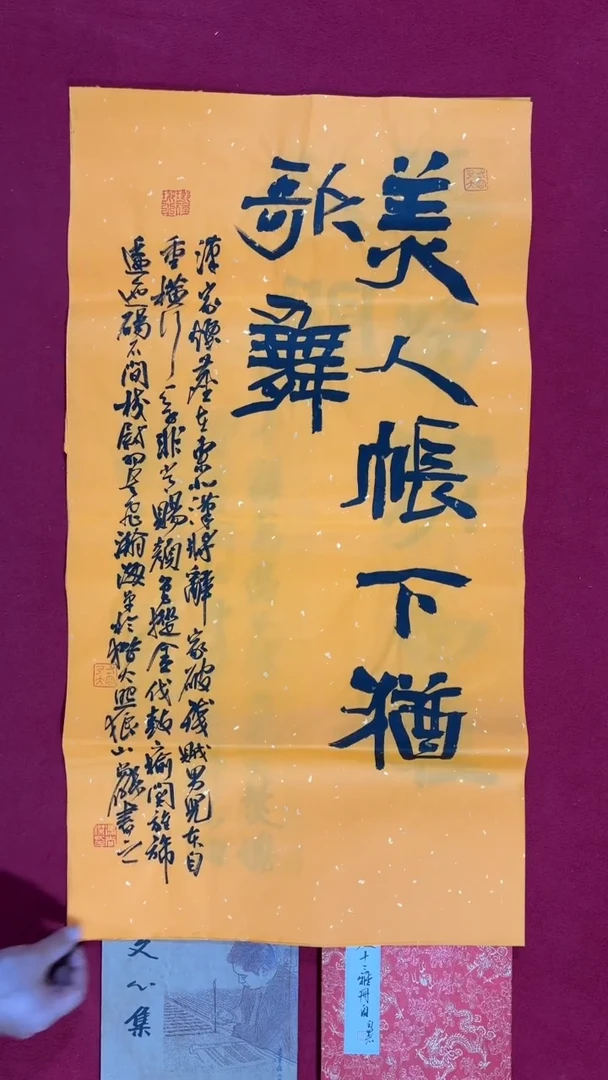 美人帳下猶
歌舞
漢家煙塵在東北漢將辭家破殘賊男兒本自
重橫行天子非常賜顏色摐金伐鼓榆関旌旆
逶迤碣石間校尉羽書飛瀚海單于猎火照狼山書之
文心集